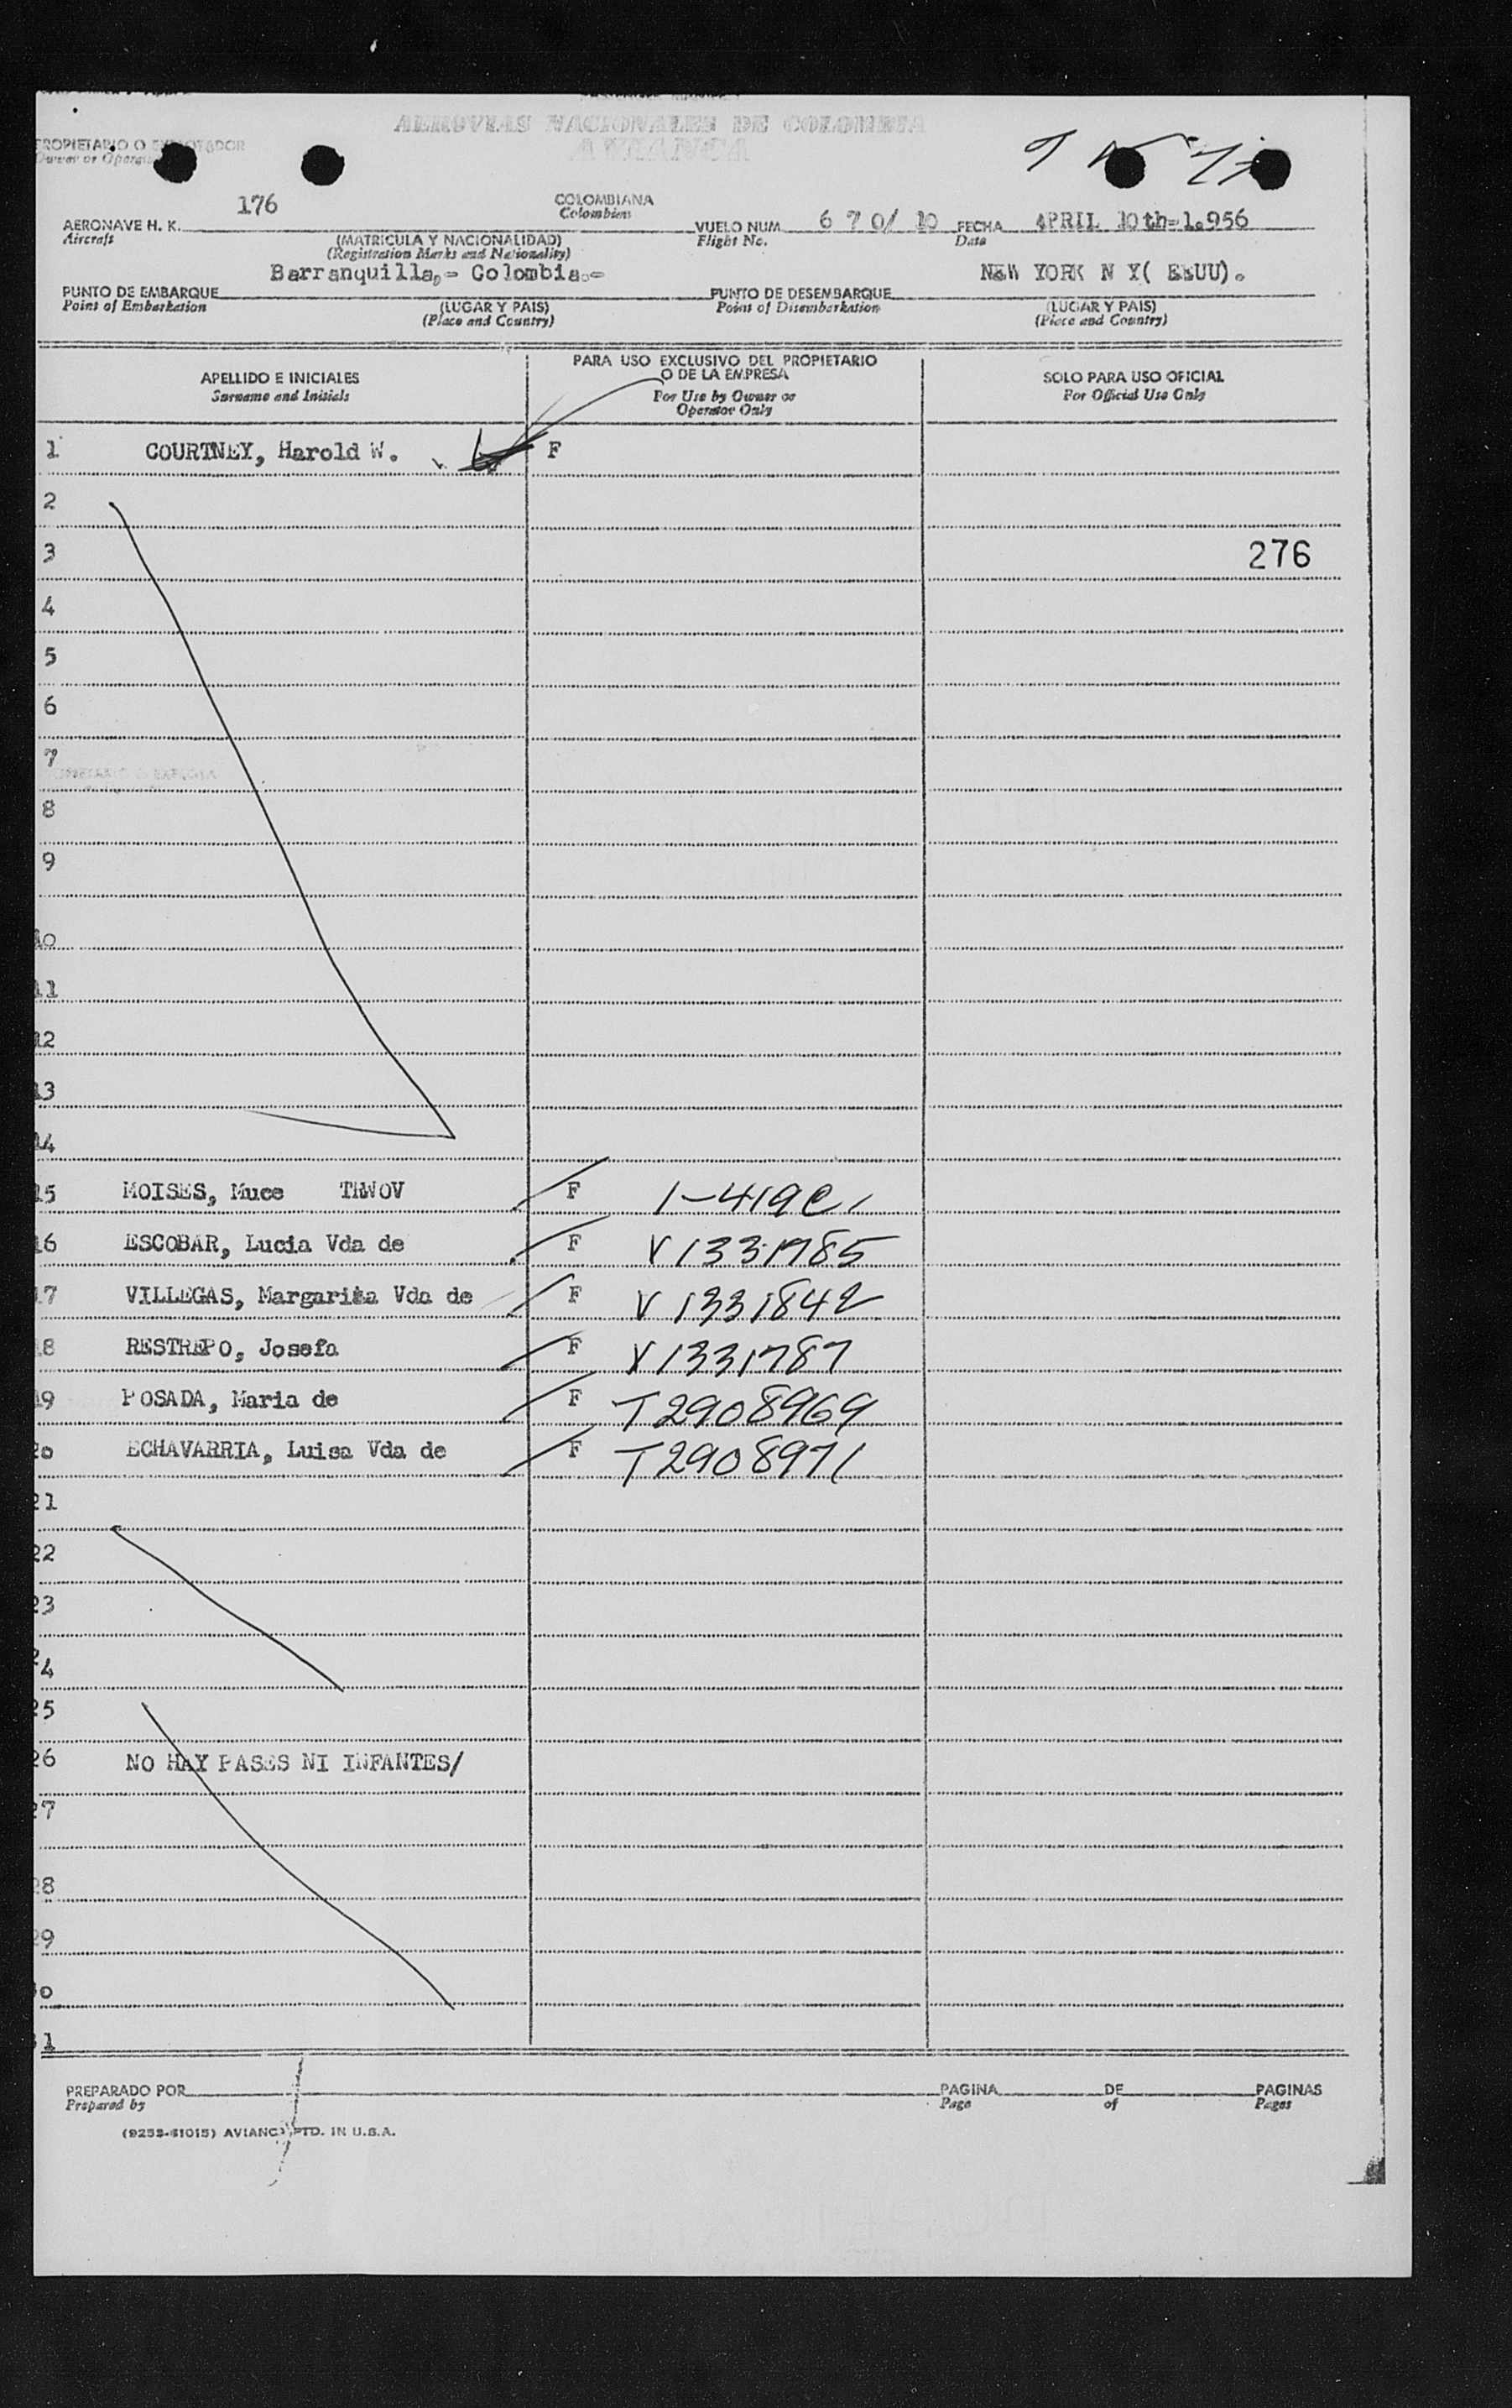 AEROVIAS NACIONALES DE COLOMBIA
AVIANCA
PROPIETARIO O EXPLOTADOR
Owner or Operator
176
COLOMBIANA
Colombian
AERONAVE H. K.
Aircraft
(MATRICULA Y NACIONALIDAD)
(Registration Marks and Nationality)
VUELO NUM 6 7 0/ 10
Flight No.
FECHA APRIL 10th=1.956
Date
Barranquilla,- Colombia.-
NEW YORK N Y( EEUU).
PUNTO DE EMBARQUE
Point of Embarkation
(LUGAR Y PAIS)
(Place and Country)
PUNTO DE DESEMBARQUE
Point of Disembarkation
(LUGAR Y PAIS)
(Place and Country)
APELLIDO E INICIALES
Surname and Initials
PARA USO EXCLUSIVO DEL PROPIETARIO
O DE LA EMPRESA
For Use by Owner or
Operator Only
SOLO PARA USO OFICIAL
For Official Use Only
1 COURTNEY, Harold W. F
2
3 276
4
5
6
7
8
9
10
11
12
13
14
15 MOISES, Muce TRWOV F 1-419C
16 ESCOBAR, Lucia Vda de F V1331785
17 VILLEGAS, Margarita Vda de F V1331842
18 RESTREPO, Josefa F V1331787
19 POSADA, Maria de F T2908969
20 ECHAVARRIA, Luisa Vda de F T2908971
21
22
23
24
25
26 NO HAY PASES NI INFANTES/
27
28
29
30
31
PREPARADO POR
Prepared by
PAGINA
Page
DE
of
PAGINAS
Pages
(9253-61015) AVIANCA PTD. IN U.S.A.